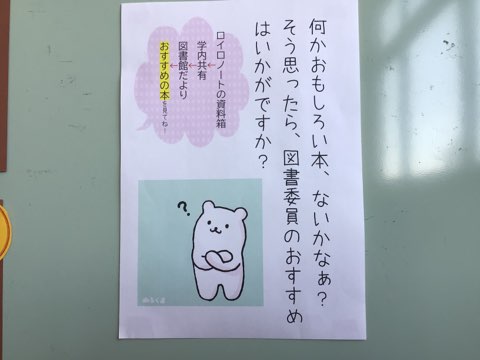 何かおもしろい本、ないかなぁ?
そう思ったら、図書委員のおすすめ
はいかがですか?
ロイロノートの資料箱
学内共有
図書館だより
おすすめの本を見てね
?